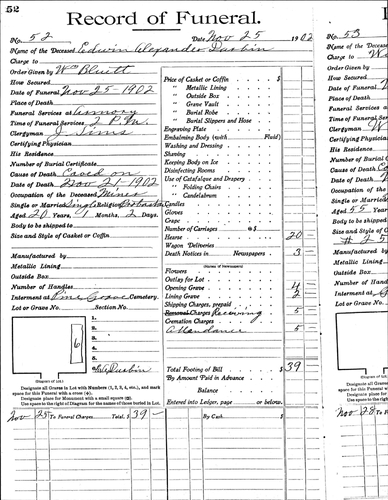 52
Record of Funeral.
No. 52 Date, Nov 25 1902
Name of the Deceased Edwin Alexander Durbin
Charge to
Order Given by Wm Bluitt
How Secured
Date of Funeral Nov 25 - 1902
Place of Death
Funeral Services at Armory
Time of Funeral Services 2 P.M.
Clergyman J. Sims
Certifying Physician
His Residence
Number of Burial Certificate
Cause of Death Caved on
Date of Death Nov 21 1902
Occupation of the Deceased Miner
Single or Married Single Religion
Aged 20 Years, 9 Months, 2 Days.
Body to be shipped to
Size and Style of Casket or Coffin
Manufactured by
Metallic Lining
Outside Box
Number of Handles
Interment at Pine Grove Cemetery.
Lot or Grave No. Section No.
1.
2.
3.
4.
5.
6
Durbin
(Diagram of Lot.)
Designate all Graves in Lot with Numbers (1, 2, 3, 4, etc.), and mark
space for this Funeral with a cross (+).
Designate place for Monument with a small square (□).
Use space to the right of Diagram for the names of those buried in Lot.
Price of Casket or Coffin $
" Metallic Lining
" Outside Box
" Grave Vault
" Burial Robe
" Burial Slippers and Hose
Engraving Plate
Embalming Body (with Fluid)
Washing and Dressing
Shaving
Keeping Body on Ice
Disinfecting Rooms
Use of Catafalque and Drapery
" Folding Chairs
" Candelabrum
Candles
Gloves
Crape
Number of Carriages @ $
Hearse 20
Wagon Deliveries
Death Notices in Newspapers 3
(Names of Newspapers)
Flowers
Outlay for Lot
Opening Grave 4
Lining Grave 2
Shipping Charges, prepaid
Personal Charges Receiving 5
Cremation Charges
Attendance 5
Total Footing of Bill $39
By Amount Paid in Advance
Balance
Entered into Ledger, page or below.
Nov 25 To Funeral Charges Total, $39 - By Cash $
No. 53
Name of the
Charge to
Order Given
How Secured
Date of Funeral
Place of Death
Funeral Services
Time of Funeral
Clergyman
Certifying Ph
His Residence
Number of Bu
Cause of Death
Date of Death
Occupation of
Single or Married
Aged 55 Years
Body to be shipped
Size and Style
Manufactured
Metallic Lining
Outside Box
Number of
Interment at
Lot or Grave
(Diagram of
Designate all Graves
space for this Fune
Designate place for
Use space to the
Nov 28 To F